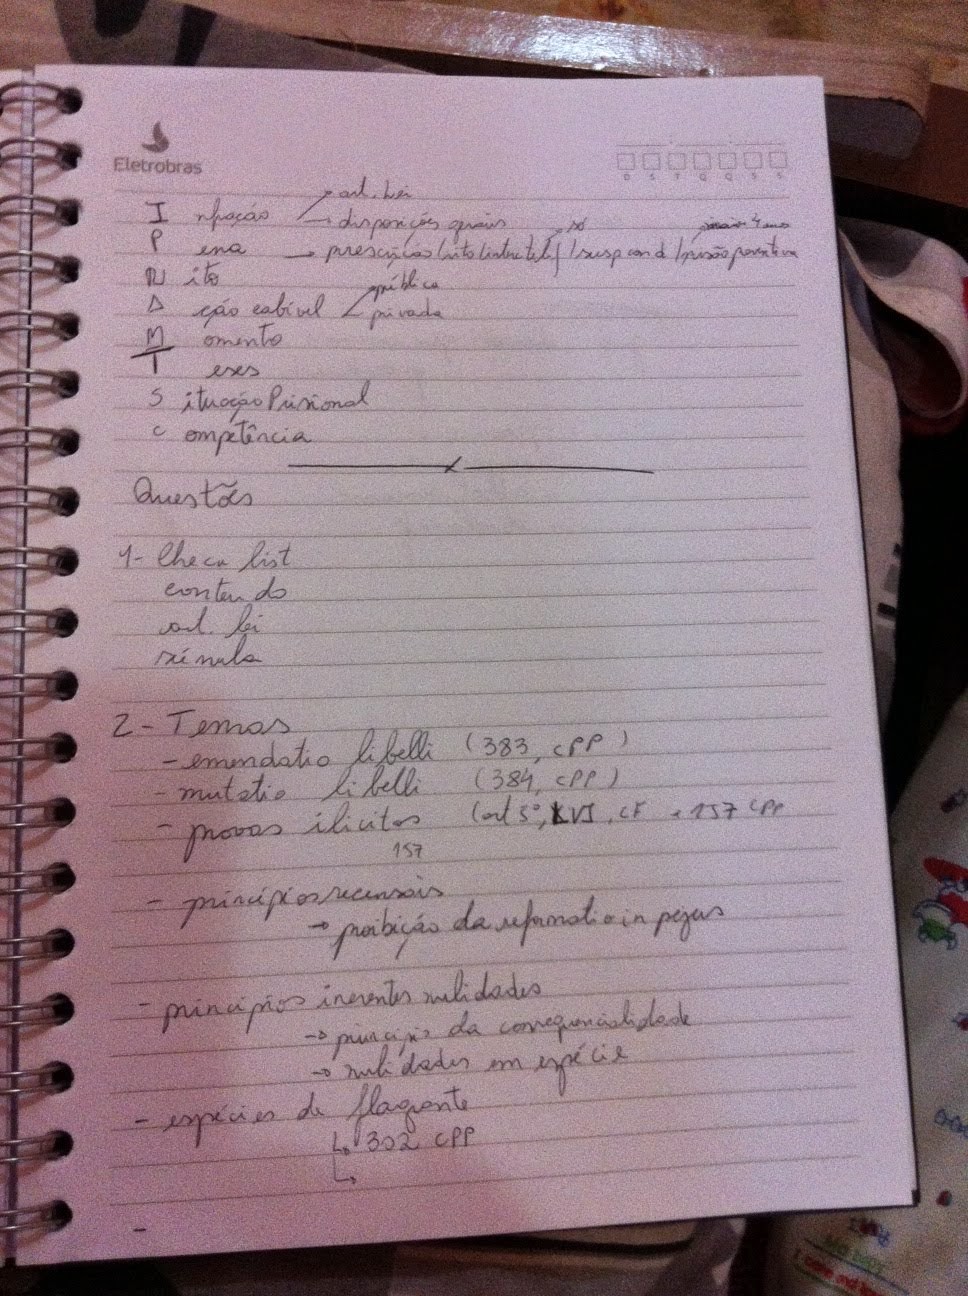 Eletrobras
D S T Q Q S S
art. Lei
I nfração → disposições gerais
P ena → prescrição / rito / / susp cond / prisão preventiva
4 anos
R ito
pública
A ção cabível
privada
M omento
T eses
S ituação Prisional
C ompetência
Questões
1- Check list
conteudo
art. lei
súmula
2- Temas
- emendatio libelli (383, CPP)
- mutatio libelli (384, CPP)
- provas ilícitas (art 5º, LVI, CF e 157 CPP
157
- princípios recursais
→ proibição da reformatio in pejus
- princípios inerentes nulidades
→ princípio da consequencialidade
→ nulidades em espécie
- espécies de flagrante
↳ 302 CPP
↳
-